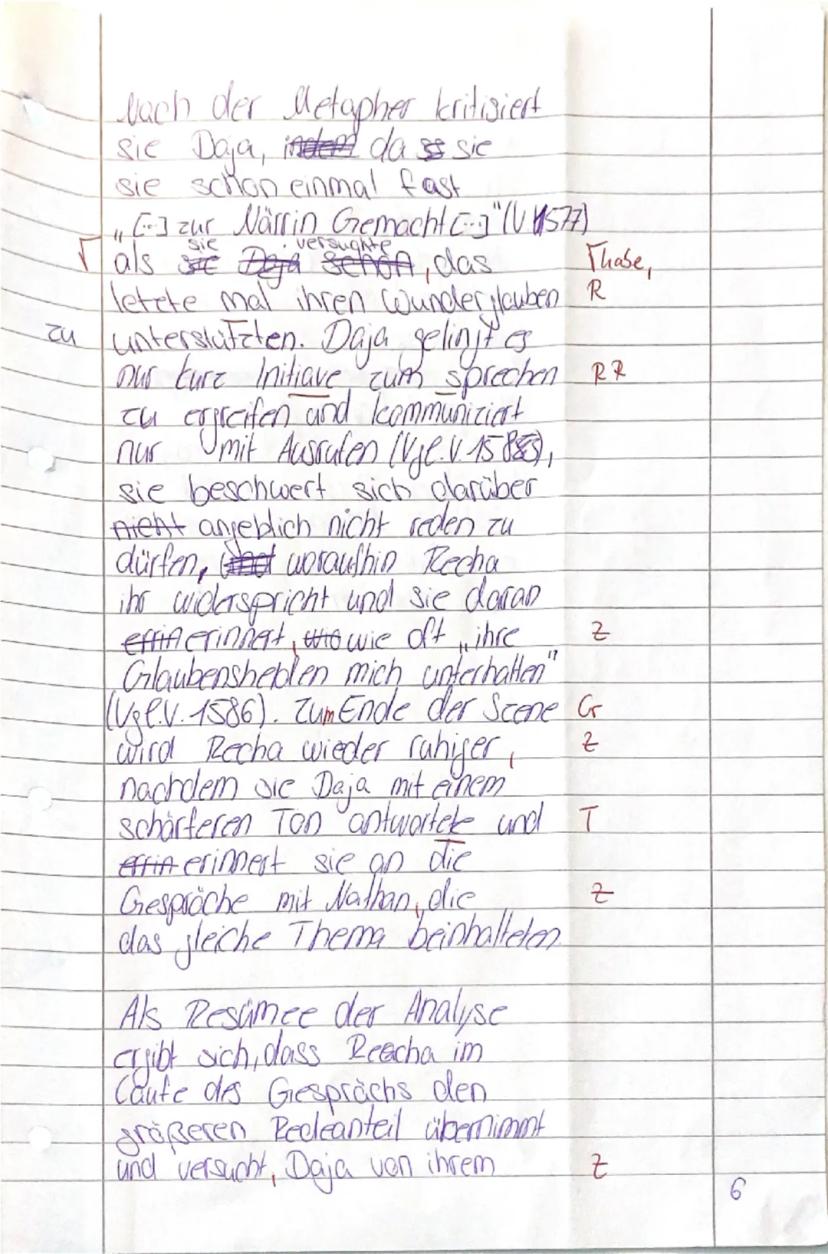 Nach der Metapher kritisiert
sie Daja, indem da ss sie
sie schon einmal fast
„[...] zur Närrin Gemacht [...]" (V 1577)
sie versuchte
√ als sie Daja schon, das Γhabe,
letzte mal ihren Wunderglauben R
zu unterstützten. Daja gelingt es
nur kurz Initiave zum sprechen RR
zu ergreifen und kommuniziert
nur mit Ausrufen (Vgl. V. 1585),
sie beschwert sich darüber
nicht angeblich nicht reden zu
dürfen, woraufhin Recha
ihr widerspricht und sie daran
erinnert, wie oft „ihre Z
Glaubenshelden mich unterhalten"
(Vgl. V. 1586). Zum Ende der Scene G
wird Recha wieder ruhiger, Z
nachdem sie Daja mit einem
schärferen Ton antwortete und T
erinnert sie an die
Gespräche mit Nathan, die Z
das gleiche Thema beinhalteten.
Als Resümee der Analyse
ergibt sich, dass Reecha im
Laufe des Gesprächs den
größeren Redeanteil übernimmt
und versucht, Daja von ihrem Z
6